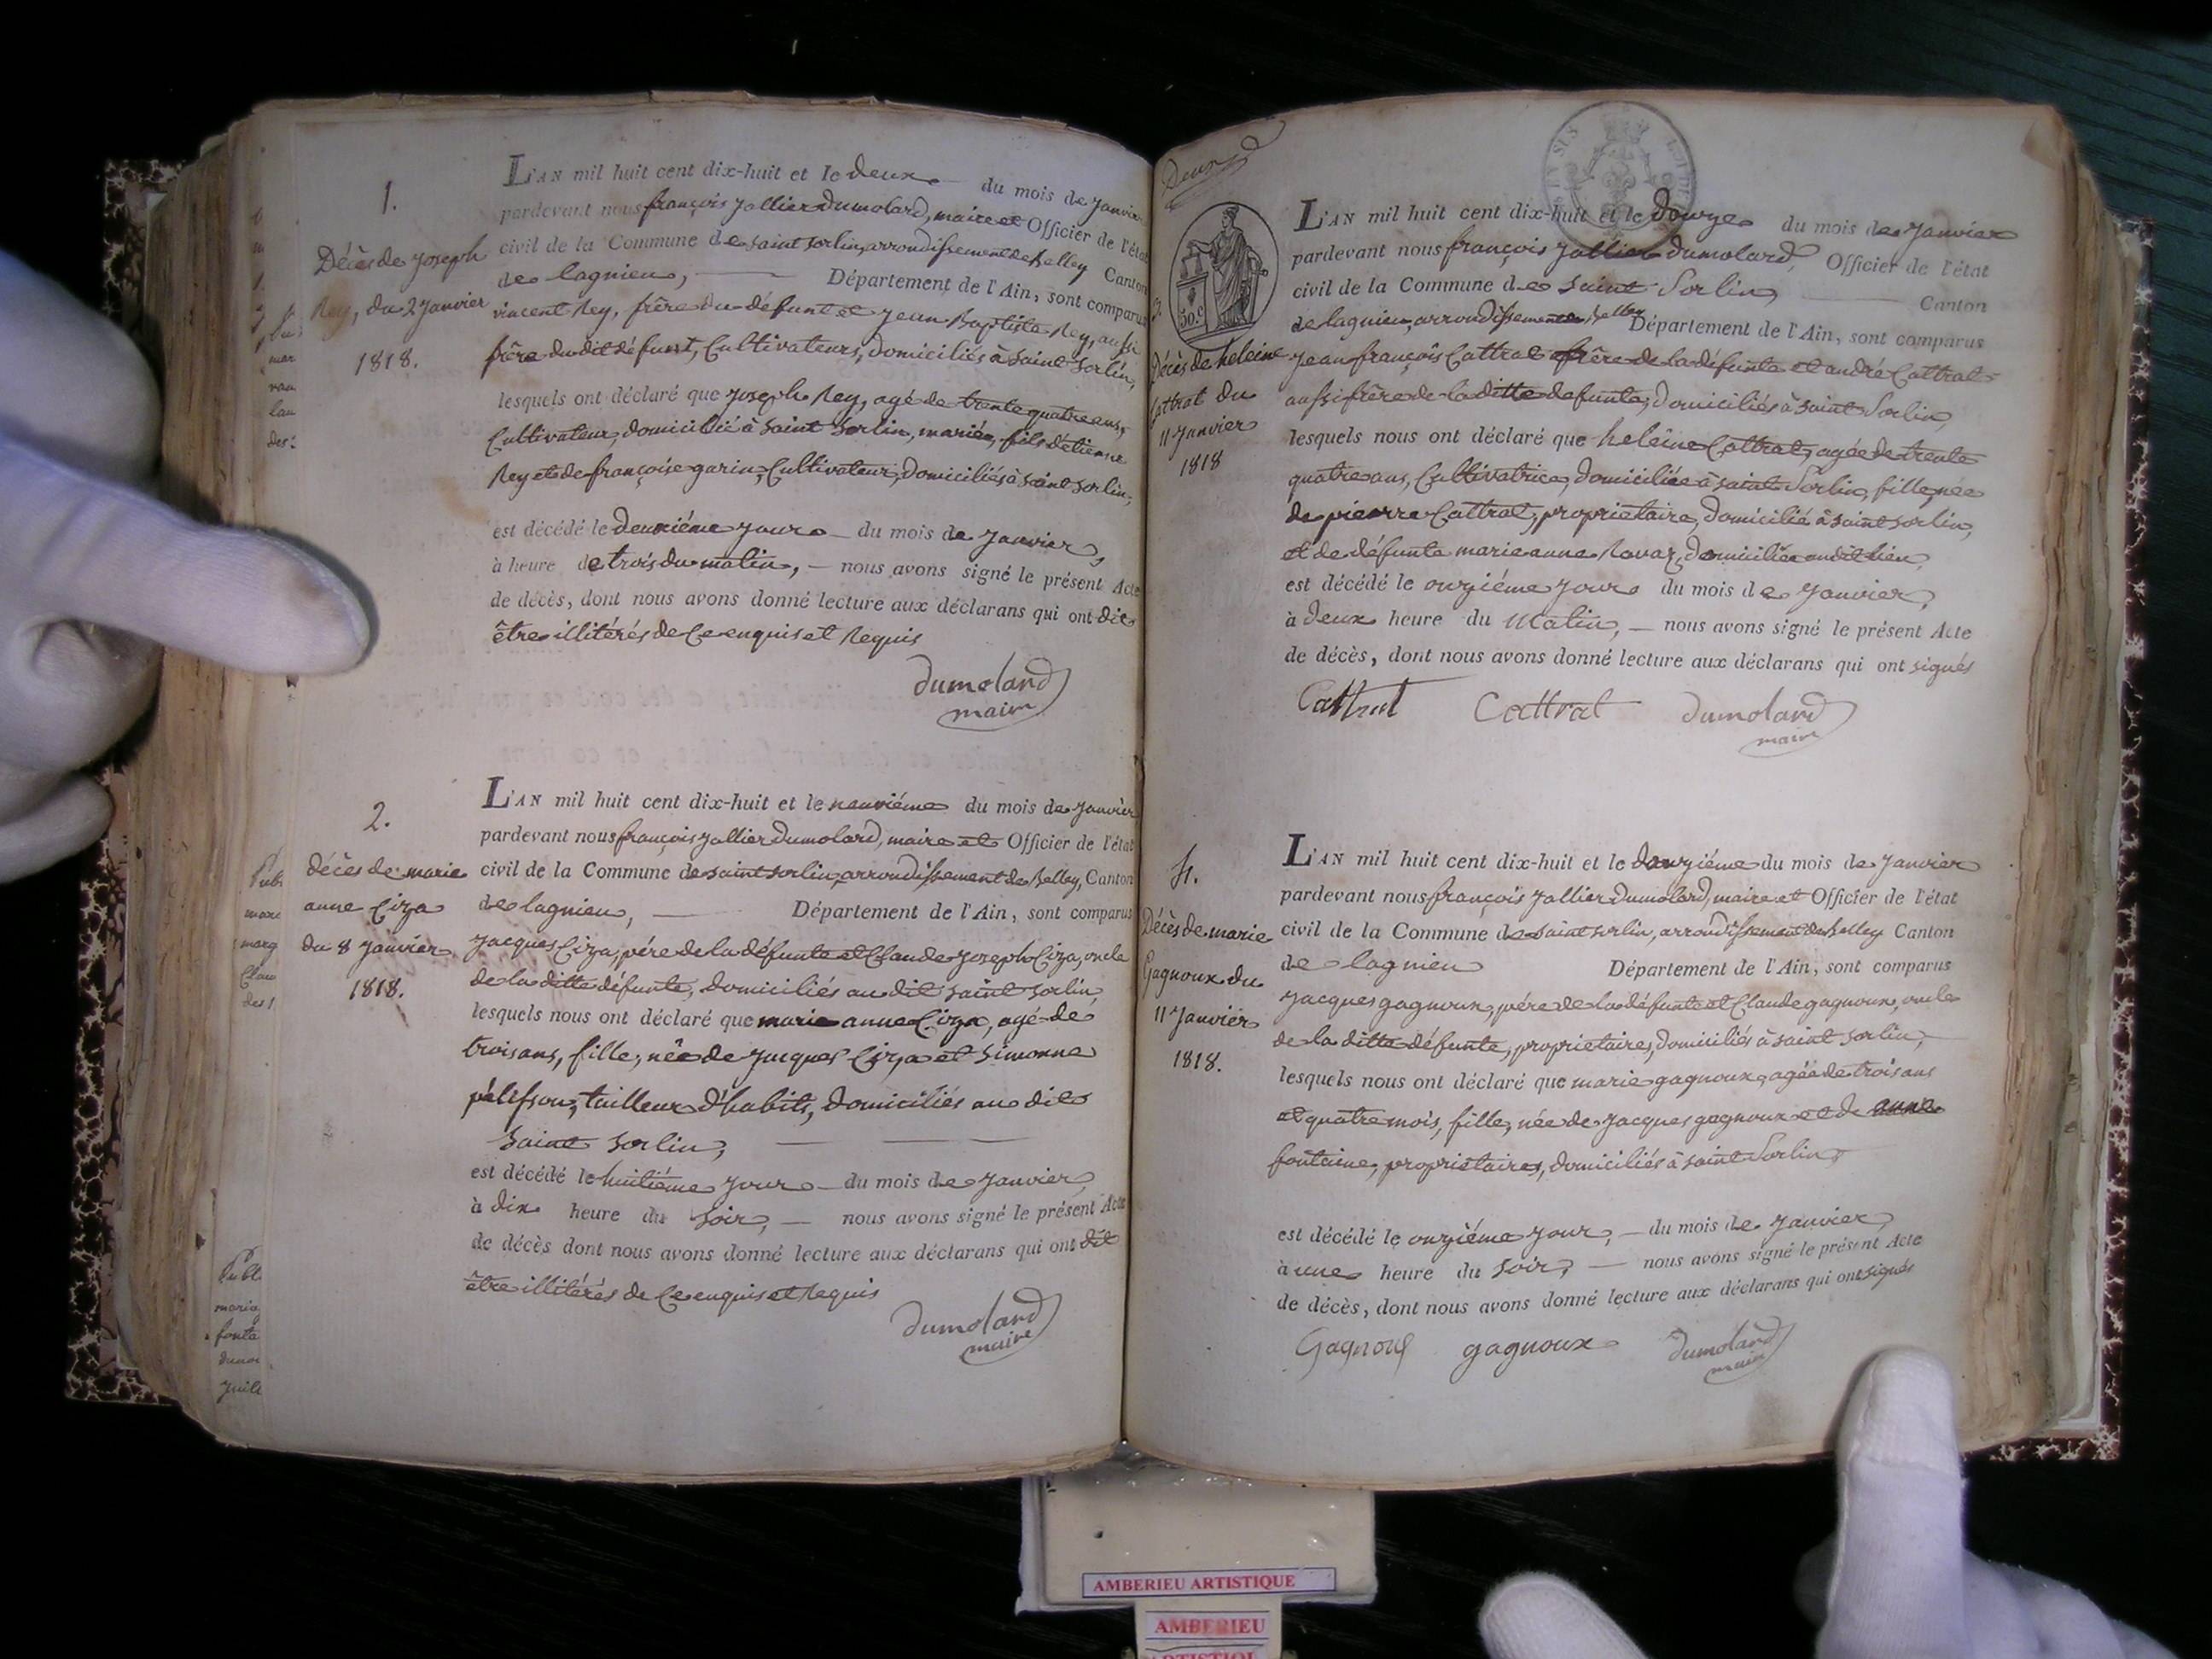 1.
Décès de Joseph
Rey, du 2 Janvier
1818.
L'AN mil huit cent dix-huit et le deux du mois de Janvier
pardevant nous françois Jallier Dumolard, maire et Officier de l'état
civil de la Commune de saint sorlin, arrondissement de belley Canton
de lagnieu, Département de l'Ain, sont comparus
vincent Rey, frère du défunt et Jean Baptiste Rey, aussi
frère dudit défunt, Cultivateurs, domiciliés à saint sorlin,
lesquels ont déclaré que Joseph Rey, agé de trente quatre ans,
Cultivateur, domicilié à saint sorlin, mariée, fils d'étienne
Rey et de françoise garin, Cultivateur, domiciliés à saint sorlin,
est décédé le deuxiéme Jour du mois de Janvier,
à heure de trois du matin, nous avons signé le présent Acte
de décès, dont nous avons donné lecture aux déclarans qui ont dit
être illitérés de Ce enquis et Requis
dumolard
maire
2.
décès de marie
anne Ciza
du 8 Janvier
1818.
L'AN mil huit cent dix-huit et le neuviéme du mois de Janvier
pardevant nous françois Jallier Dumolard, maire et Officier de l'état
civil de la Commune de saint sorlin, arrondissement de Belley, Canton
de lagnieu, Département de l'Ain, sont comparus
Jacques Ciza, pére de la défunte et Claude Joseph Ciza, oncle
de la ditte défunte, domiciliés au dit saint sorlin,
lesquels nous ont déclaré que marie anne Ciza, agé de
trois ans, fille, née de Jacques Ciza et Simonne
pélisson, tailleur d'habits, domiciliés au dit
saint sorlin,
est décédé le huitiéme Jour du mois de Janvier,
à dix heure du soir, nous avons signé le présent Acte
de décès dont nous avons donné lecture aux déclarans qui ont dit
être illitérés de Ce enquis et Requis
dumolard
maire
Deux
50.c
3.
Décès de heleine
Cattrat du
11 Janvier
1818
L'AN mil huit cent dix-huit et le douze du mois de Janvier
pardevant nous françois Jallier dumolard, Officier de l'état
civil de la Commune de saint Sorlin, Canton
de lagnieu, arrondissement de belley Département de l'Ain, sont comparus
Jean françois Cattrat frère de la défunte et andré Cattrat
aussi frère de la ditte defunte, domiciliés à saint Sorlin,
lesquels nous ont déclaré que heleine Cattrat, agée de trente
quatre ans, Cultivatrice, domiciliée à saint Sorlin, fille, née
de pierre Cattrat, proprietaire, domicilié à saint sorlin,
et de défunte marie anne Ravaz, domiciliée audit lieu,
est décédé le onziéme Jour du mois de Janvier,
à deux heure du Matin, nous avons signé le présent Acte
de décès, dont nous avons donné lecture aux déclarans qui ont signés
Cattrat Cattrat dumolard
maire
4.
Décès de marie
Gagnoux du
11 Janvier
1818.
L'AN mil huit cent dix-huit et le douziéme du mois de Janvier
pardevant nous françois Jallier Dumolard, maire et Officier de l'état
civil de la Commune de saint sorlin, arrondissement de belley Canton
de lagnieu Département de l'Ain, sont comparus
Jacques gagnoux, pére de la défunte et Claude gagnoux, oncle
de la ditte défunte, proprietaires, domiciliés à saint sorlin,
lesquels nous ont déclaré que marie gagnoux, agée de trois ans
et quatre mois, fille, née de Jacques gagnoux et de anne
fontaine, proprietaires, domiciliés à saint Sorlin,
est décédé le onziéme Jour, du mois de Janvier,
à une heure du soir, nous avons signé le présent Acte
de décès, dont nous avons donné lecture aux déclarans qui ont signés
Gagnoux gagnoux dumolard
maire
AMBERIEU ARTISTIQUE
AMBERIEU
ARTISTIQUE